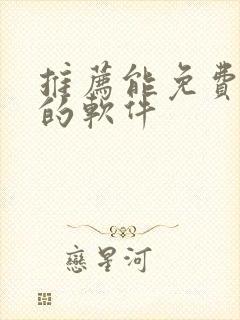 推薦能免費
的軟件
戀星河